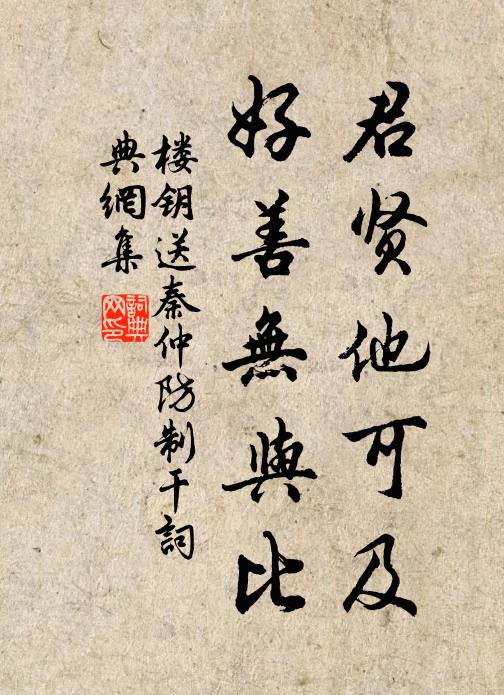 君贤他可及
好善無與比
楼钥送秦仲防制干詞
典網集
詞典网印